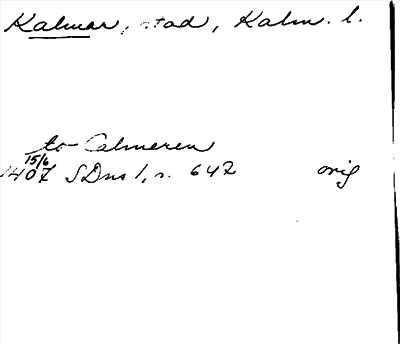 Kalmar, stad, Kalm. l.
to Calmeren
15/6
1407 SDns 1, s. 642 orig